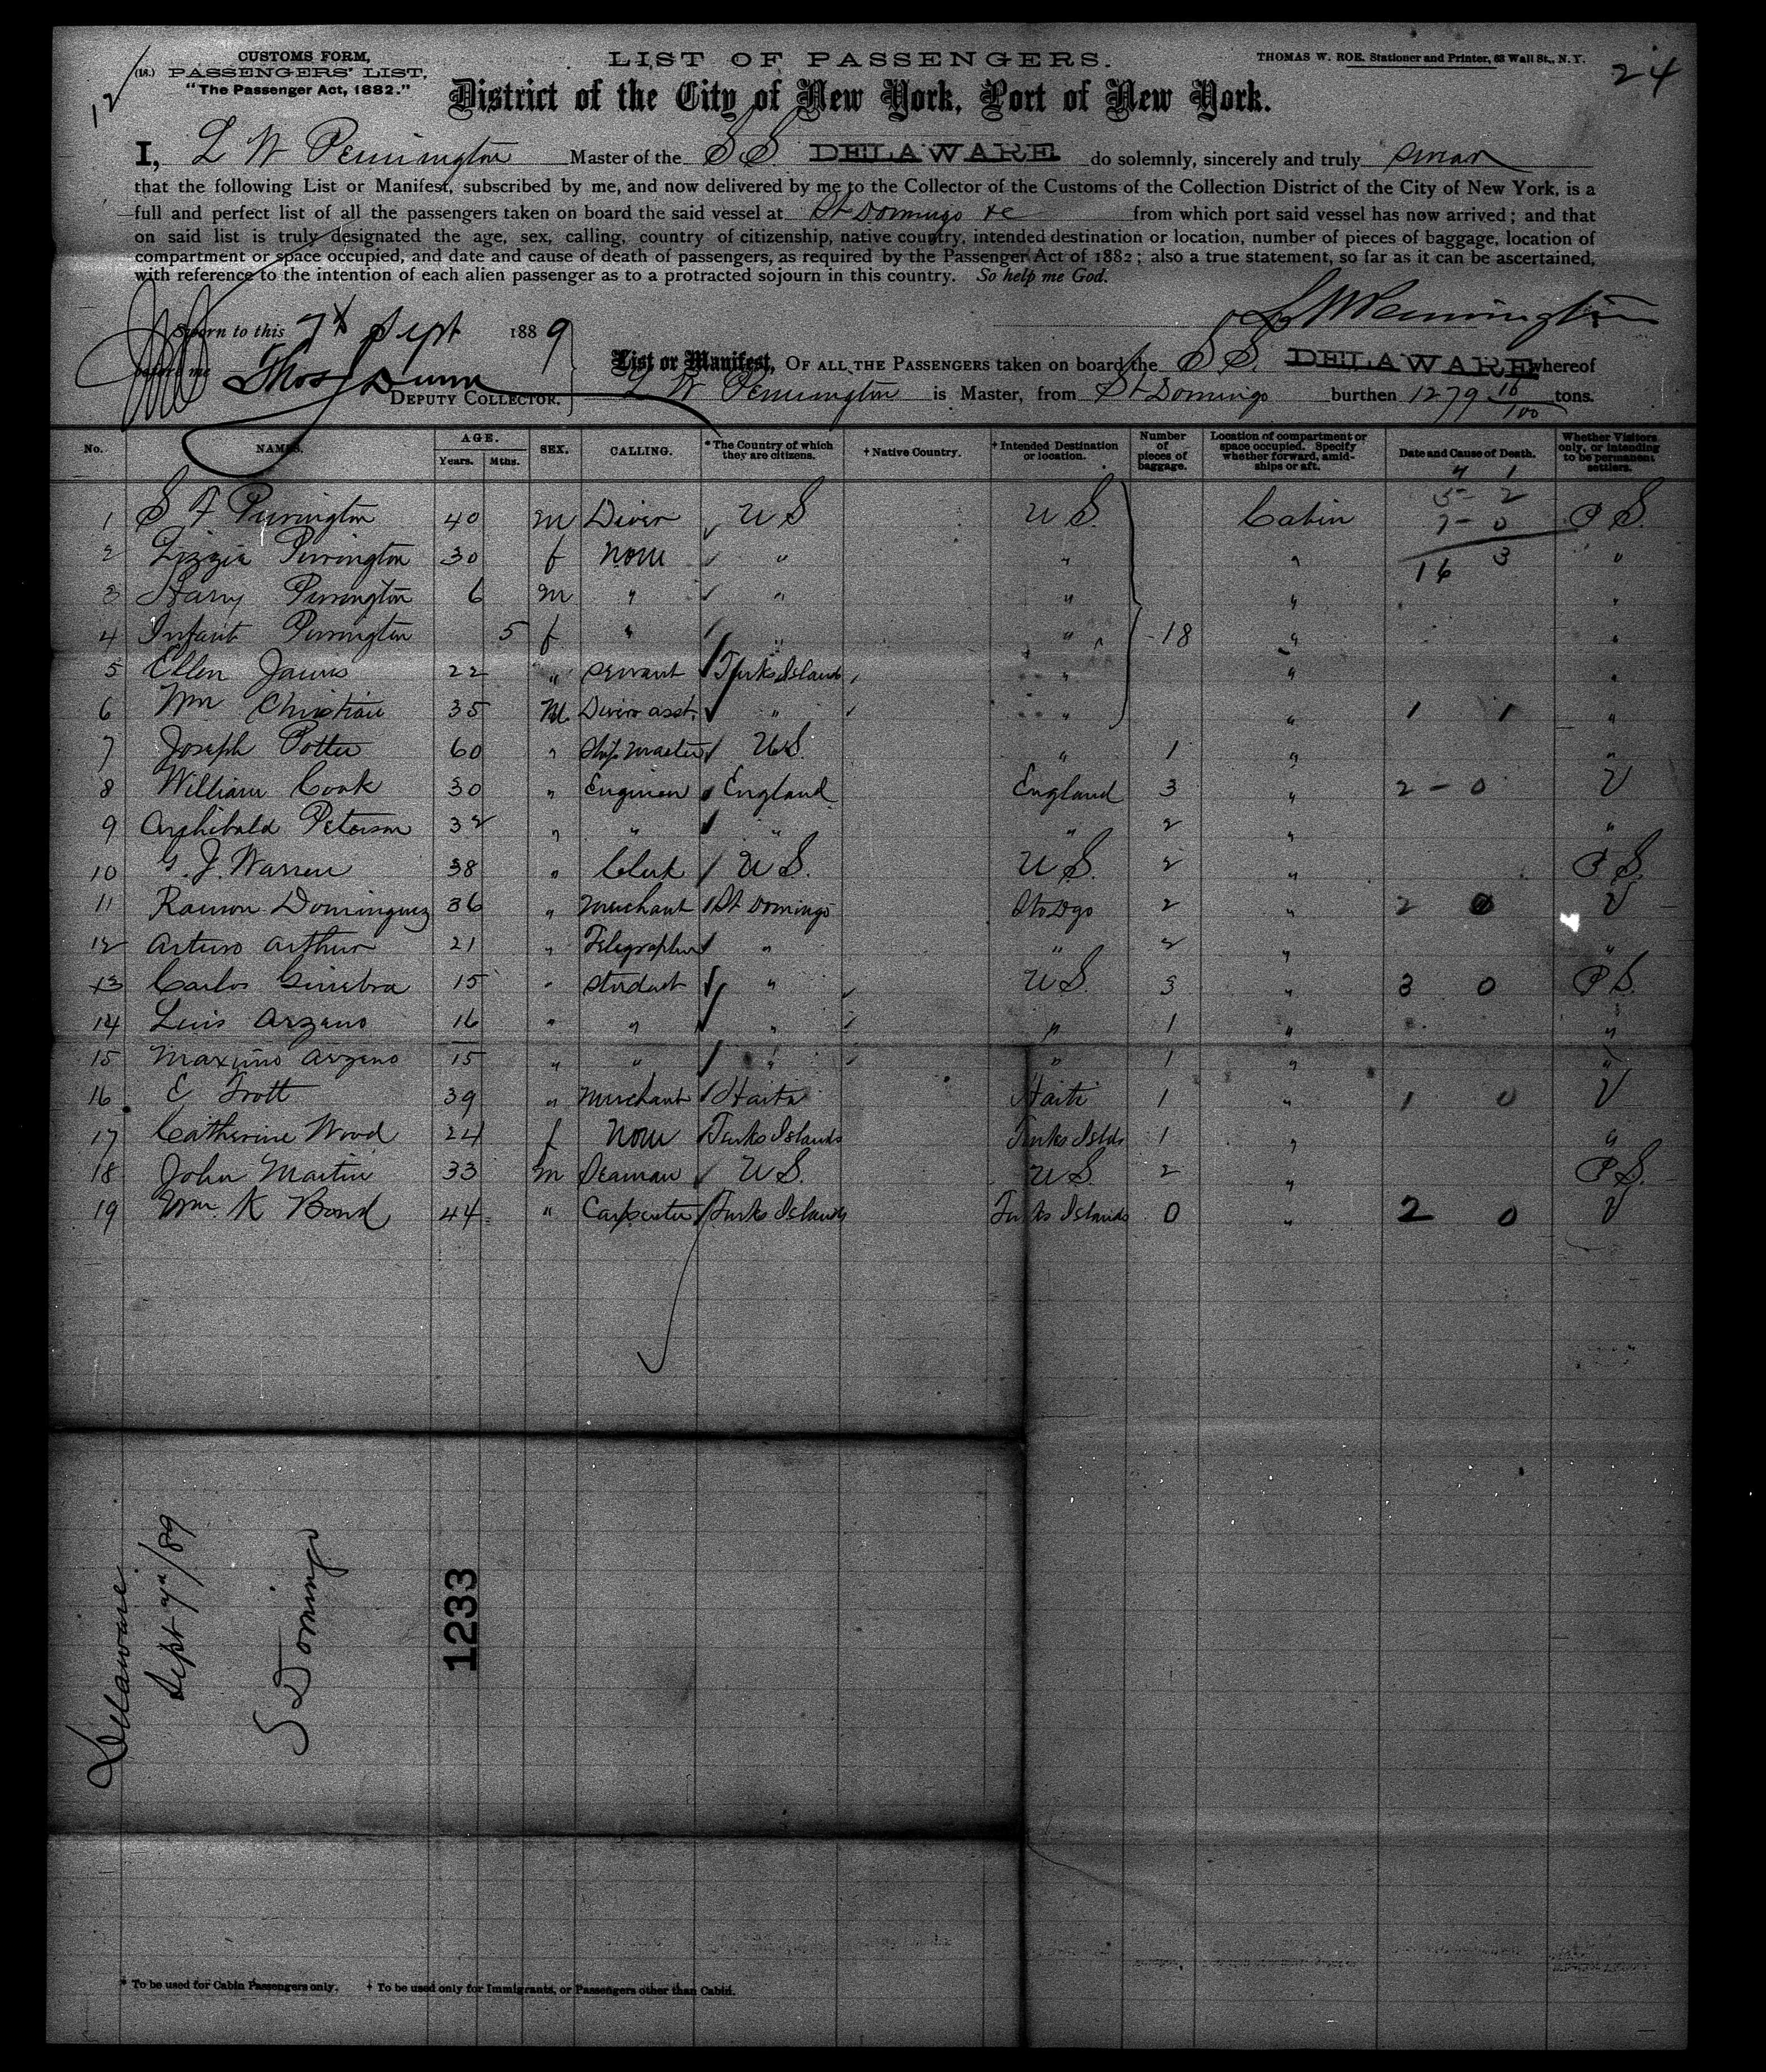 CUSTOMS FORM,
(18.) PASSENGERS' LIST,
"The Passenger Act, 1882."
12
LIST OF PASSENGERS.
THOMAS W. ROE, Stationer and Printer, 63 Wall St., N. Y.
24
District of the City of New York, Port of New York.
I, L W Pennington Master of the S S. DELAWARE do solemnly, sincerely and truly swear
that the following List or Manifest, subscribed by me, and now delivered by me to the Collector of the Customs of the Collection District of the City of New York, is a
full and perfect list of all the passengers taken on board the said vessel at St Domingo &c from which port said vessel has now arrived; and that
on said list is truly designated the age, sex, calling, country of citizenship, native country, intended destination or location, number of pieces of baggage, location of
compartment or space occupied, and date and cause of death of passengers, as required by the Passenger Act of 1882; also a true statement, so far as it can be ascertained,
with reference to the intention of each alien passenger as to a protracted sojourn in this country. So help me God.
L W Pennington
Sworn to this 7th Sept 1889
before me
Thos J Dunn
DEPUTY COLLECTOR.
List or Manifest, OF ALL THE PASSENGERS taken on board the S S. DELAWARE whereof
L W Pennington is Master, from St Domingo burthen 1279 16/100 tons.
No. NAMES. AGE. Years. Mths. SEX. CALLING. * The Country of which they are citizens. † Native Country. † Intended Destination or location. Number of pieces of baggage. Location of compartment or space occupied. Specify whether forward, amidships or aft. Date and Cause of Death. Whether Visitors only, or intending to be permanent settlers.
4 1
5 - 2
1 S F Purrington 40 m Diver U S U S. Cabin 7 - 0 P S.
2 Lizzie Purrington 30 f none " " " 16 3 "
3 Harry Purrington 6 m " " " " "
4 Infant Purrington 5 f " " " 18 " "
5 Ellen Jarvis 22 " servant Turks Islands " " "
6 Wm Christian 35 M. Divers asst. " " " 1 1 "
7 Joseph Potter 60 " Ship Master U S " 1 " "
8 William Cook 30 " Engineer England England 3 " 2 - 0 V
9 Archibald Peterson 32 " " " " 2 " "
10 G. J. Warren 38 " Clerk U S. U S. 2 " P S.
11 Ramon Dominguez 36 " Merchant St Domingo Sto Dgo 2 " 2 0 V
12 Arturo Arthur 21 " Telegrapher " " 2 " "
13 Carlos Ginebra 15 " student " U S. 3 " 3 0 P S.
14 Luis Arzeno 16 " " " " 1 " "
15 Maximo Arzeno 15 " " " " 1 " "
16 E Trott 39 " Merchant Haiti Haiti 1 " 1 0 V
17 Catherine Wood 24 f none Turks Islands Turks Islds 1 " "
18 John Martin 33 m Seaman U S. U S. 2 " P S.
19 Wm. K Bond 44 " Carpenter Turks Islands Turks Islands 0 " 2 0 V
Delaware.
Sept 7th/89
S Domingo
1233
* To be used for Cabin Passengers only. † To be used only for Immigrants, or Passengers other than Cabin.